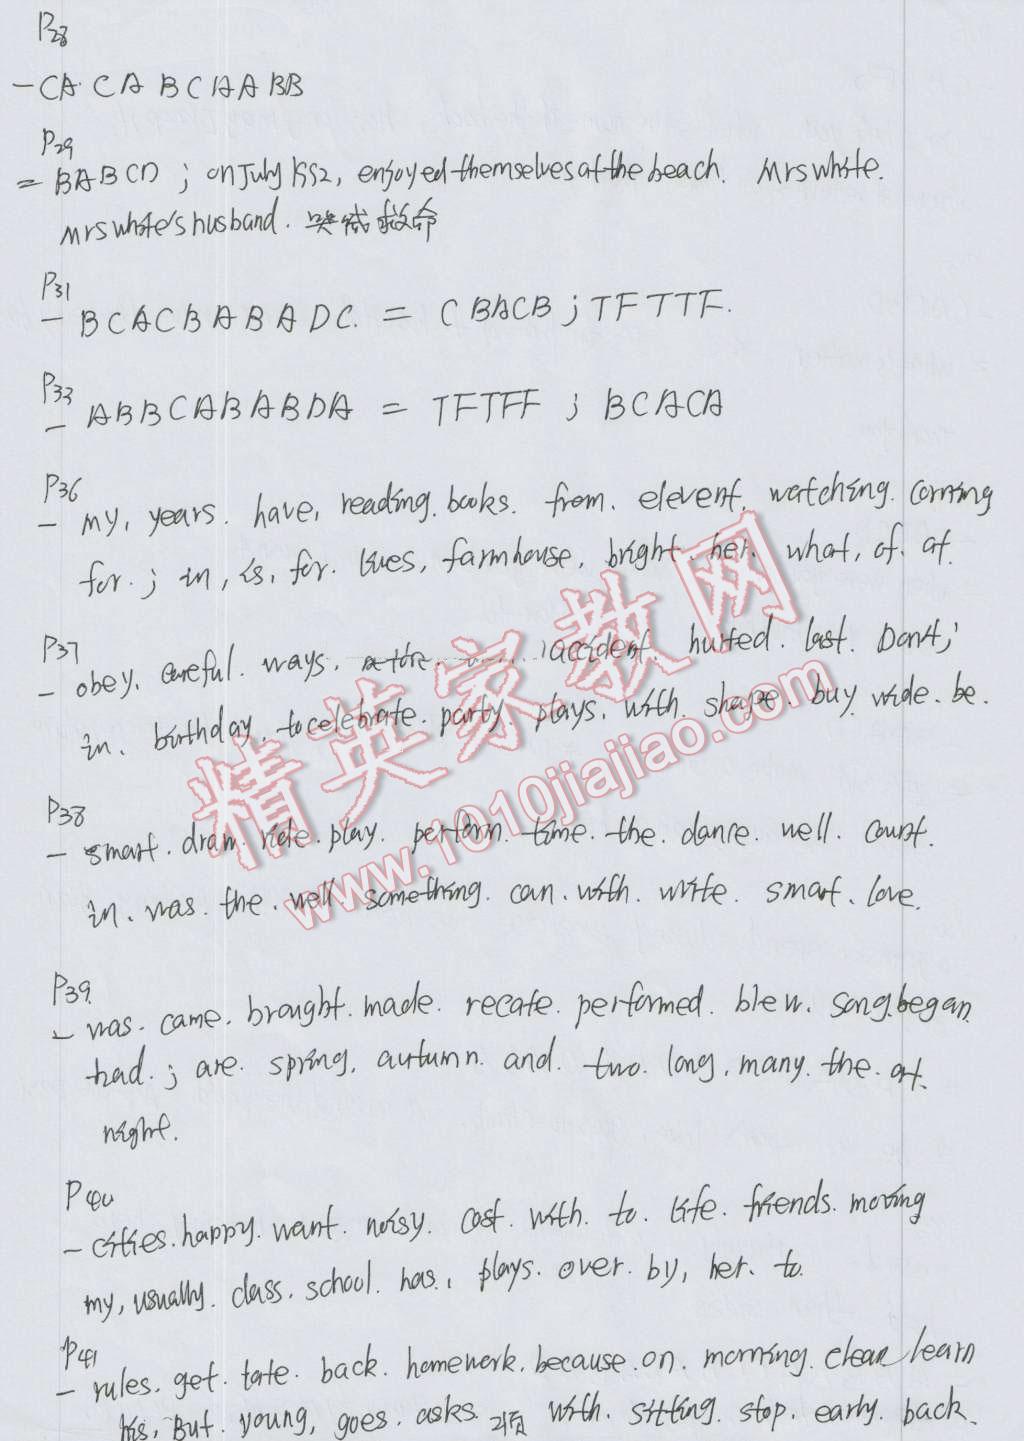 P28
一 CA. CA BCAAABB
P29
二 BABCD ; on July 1552, enjoyed themselves at the beach. Mrs white.
Mrs white's husband. 救命
P31
一 BCACBABADC. 二 CBACB ; TFTTF.
P33
一 ABBCABABDA 二 TFTFF ; BCACA
P36
一 my, years. have, reading. books. from. elevent. watching. coming
for. ; in, is, for. lives, farmhouse, bright. her. what, of. at
P37
一 obey. careful. ways. accident. hurted. last. Don't;
in. birthday. to celebrate. party. plays. with. shape. buy. wide. be.
P38
一 smart. draw. ride. play. perform. time. the. dance. well. count.
in. was. the. well something. can. with. write. smart. love.
P39
一 was. came. brought. made. recate. performed. blew. song. began.
had. ; are. spring. autumn. and. two. long. many. the. at.
night.
P40
一 cities. happy. want. noisy. cost. with. to. life. friends. moving
my, usually. class. school. has. plays. over. by, her. to.
P41
一 rules. get. tate. back. homework. because. on. morning. clean learn
his, But. young, goes. asks. with. sitting. stop. early. back.
精英家教网
www.1010jiajiao.com